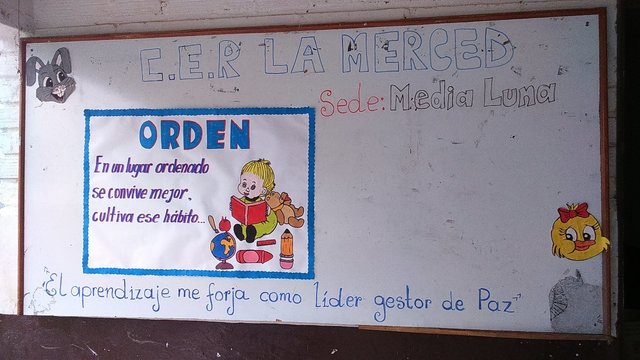 C.E.R LA MERCED
Sede: Media Luna
ORDEN
En un lugar ordenado
se convive mejor,
cultiva ese hábito...
"El aprendizaje me forja como líder gestor de Paz"